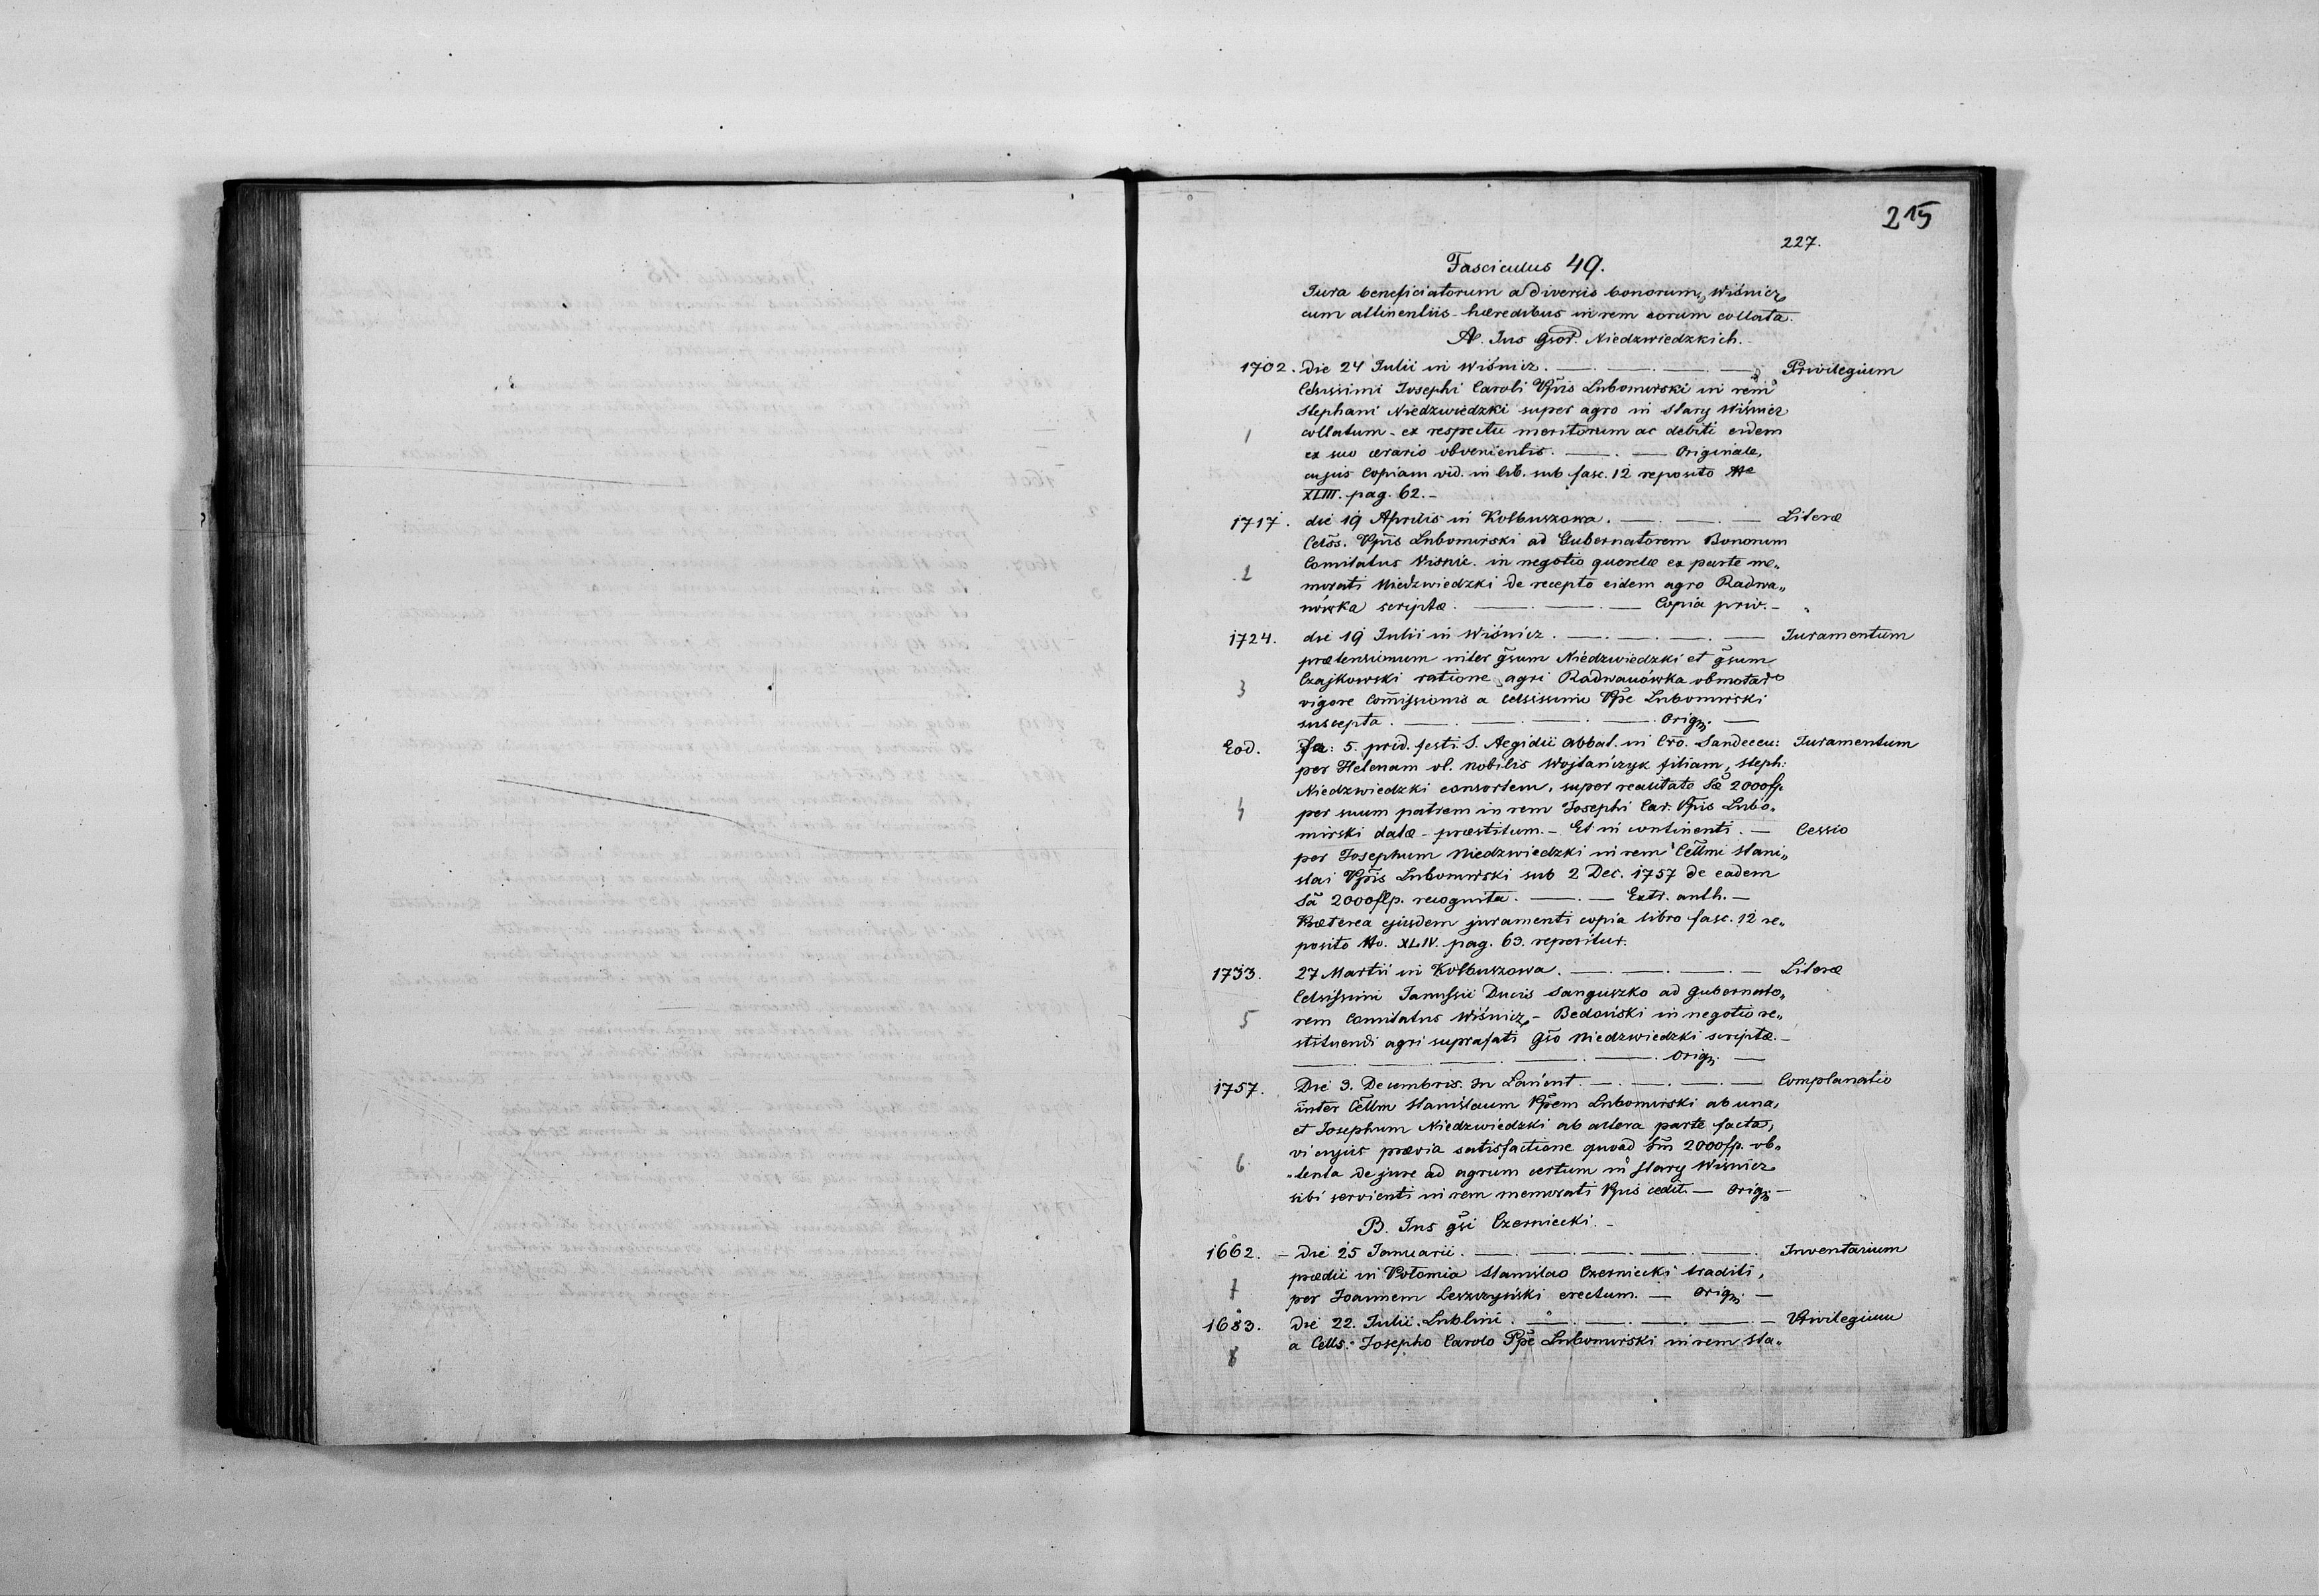 215
227.
Fasciculus 49.
Jura beneficiatorum a diversis bonorum Wiśnicz
cum attinentiis hæredibus in rem eorum collata.
A. Jus Gsor. Niedzwiedzkich.
1702. die 24 Julii in Wiśnicz. — Privilegium
Celsissimi Josephi Caroli Ppis Lubomirski in rem
Stephani Niedzwiedzki super agro in Stary Wiśnicz
1 collatum - ex respectu meritorum ac debiti eidem
ex suo ærario obvenientis. — . — Originale,
cujus Copiam vid. in lib. sub fasc. 12 reposito Nr
XLIII. pag. 62. -
1717. die 19 Aprilis in Kolbuszowa. — . — . — Literæ
Celss. Ppis Lubomirski ad Gubernatorem Bonorum
2 Comitatus Wisnic. in negotio querelæ ex parte me„
morati Niedzwiedzki de recepto eidem agro Radwa„
nówka scriptæ. — . — . — Copia priv. -
1724. die 19 Julii in Wiśnicz. — . — . — . — Juramentum
prætensionum inter gsum Niedzwiedzki et gsum
3 Czajkowski ratione agri Radwanówka
vigore Comissionis a Celsissimo Ppe Lubomirski
suscepta. — . — . — . — Orig. —
Eod. Fa: 5. prid. festi S. Aegidii Abbat. in Cro. Sandecen: Juramentum
per Helenam ol. Nobilis Wojtańczyk filiam, Steph:
Niedzwiedzki consortem, super realitate Sæ 2000 fp.
4 per suum patrem in rem Josephi Car. Ppis Lubo„
mirski datæ - præstitum. - Et in continenti. — Cessio
per Josephum Niedzwiedzki in rem Cellmi Stani„
slai Ppis Lubomirski sub 2 Dec. 1757 de eadem
Sa 2000 flp. recognita. — . — Extr. auth. -
Præterea ejusdem juramenti copia libro fasc. 12 re„
posito No. XLIV. pag. 63. reperitur.
1733. 27 Martii in Kolbuszowa. — . — . — . — Literæ
Celsissimi Janussii Ducis Sanguszko ad Gubernato„
5 rem Comitatus Wiśnicz - Bedoński in negotio re„
stituendi agri suprafati Gso Niedzwiedzki scriptæ. -
— . — . — . — Orig. —
1757. Die 3. Decembris. In Łańcut. — . — . — . — Complanatio
inter Cellm Stanislaum Ppem Lubomirski ab una,
et Josephum Niedzwiedzki ab altera parte facta,
vi cujus prævia satisfactione quoad Sm 2000 fp. ob„
6 „tenta de jure ad agrum certum in Stary Wisnicz
sibi servienti in rem memorati Ppis cedit. — Orig. —
B. Jus gsi Czerniecki. -
1662. - Die 25 Januarii. — . — . — . — . — Inventarium
prædii in Połomia Stanislao Czerniecki traditi,
7 per Joannem Leszczyński erectum. — Orig. —
1683. Die 22. Julii. Lublini. — . — . — . — . — Privilegium
8 a Cells. Josepho Carolo Ppe Lubomirski in rem Sta„